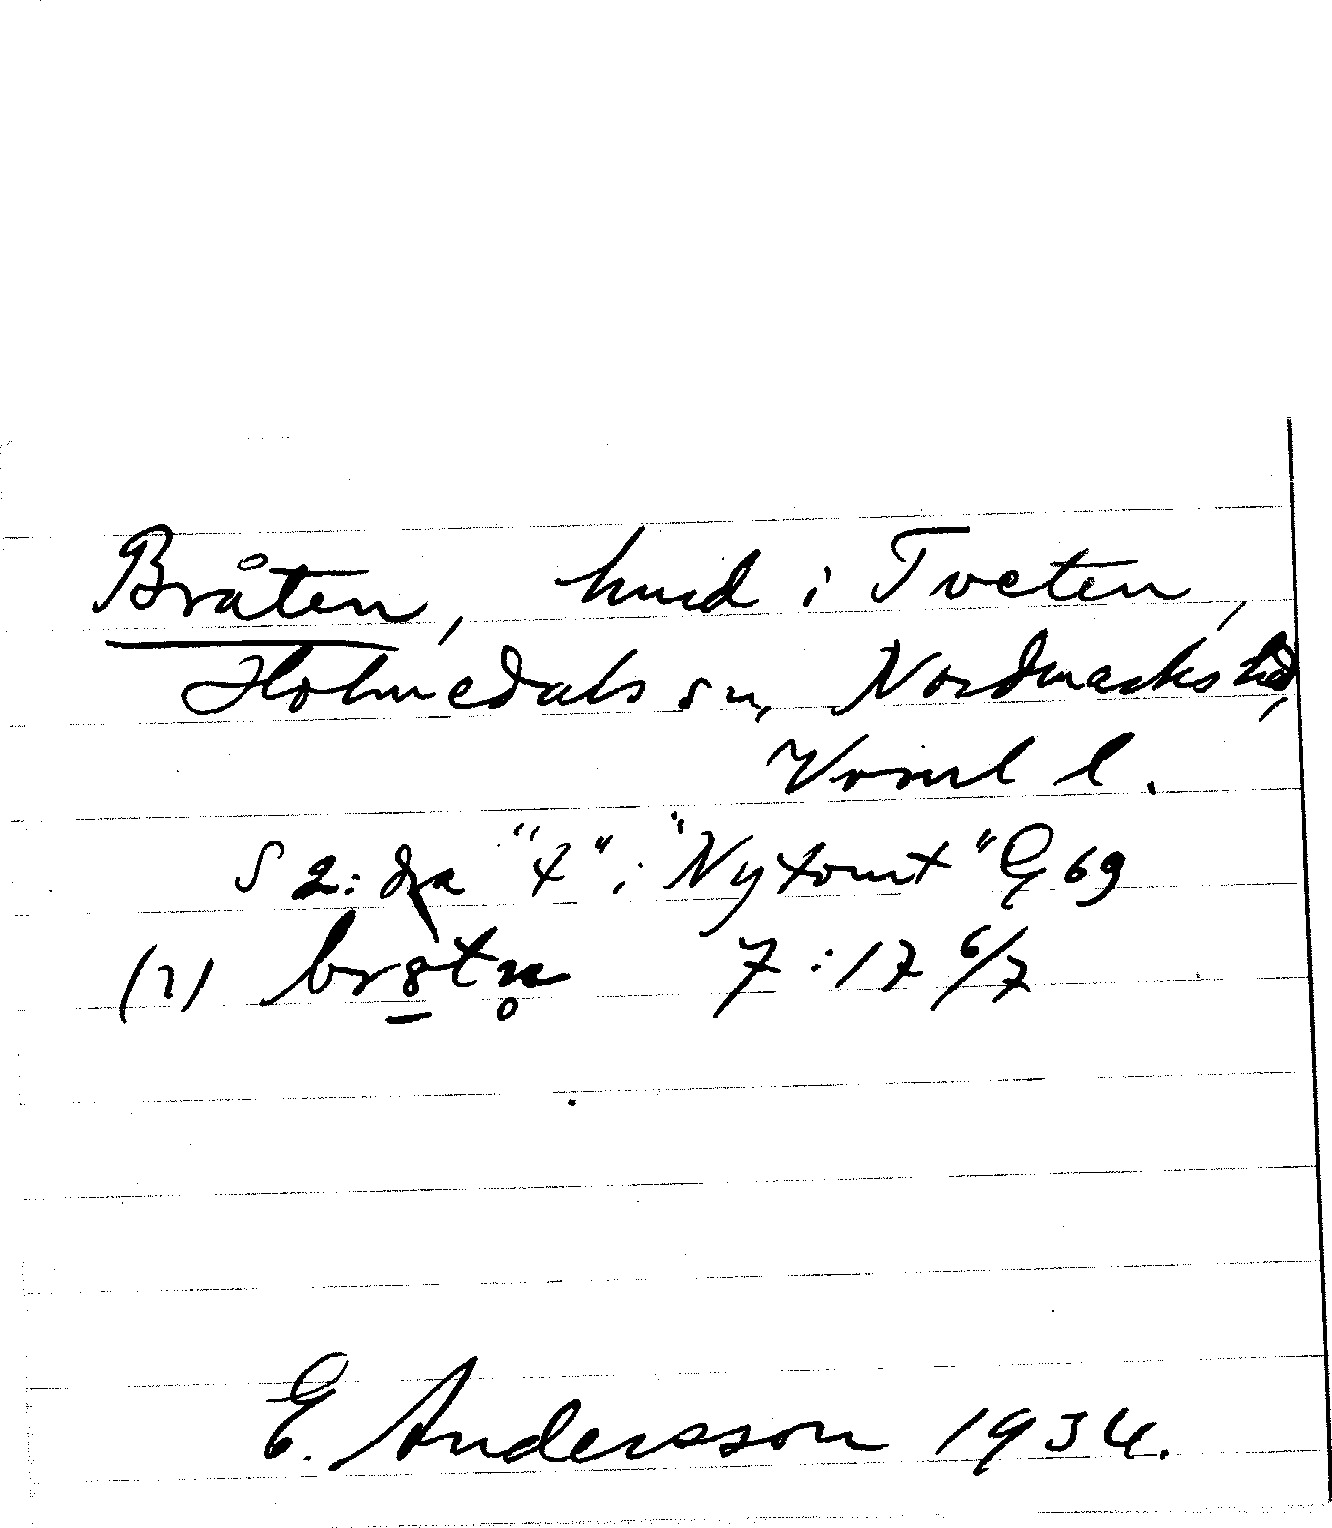 Bråten, hmd i Tveten,
Holmedals sn, Nordmarks hd,
Vrml l.
S 2: dra "t" i "Nytomt" G 69
(2) br8tn 7:17 6/7
E. Andersson 1934.